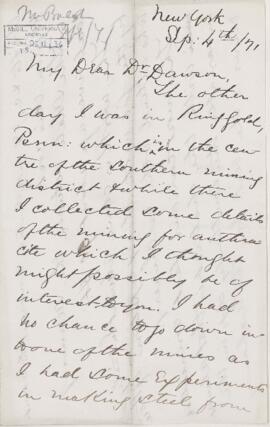 New York
Sep: 4th/71
McGILL UNIVERSITY
ARCHIVES
My Dear Dr. Dawson,
The other
day I was in Ringgold,
Penn: which is in the cen
tre of the Southern mining
district & while there
I collected some details
of the mining for anthra
cite which I thought
might possibly be of
interest to you. I had
no chance to go down in
to one of the mines as
I had some Experiments
in making steel from